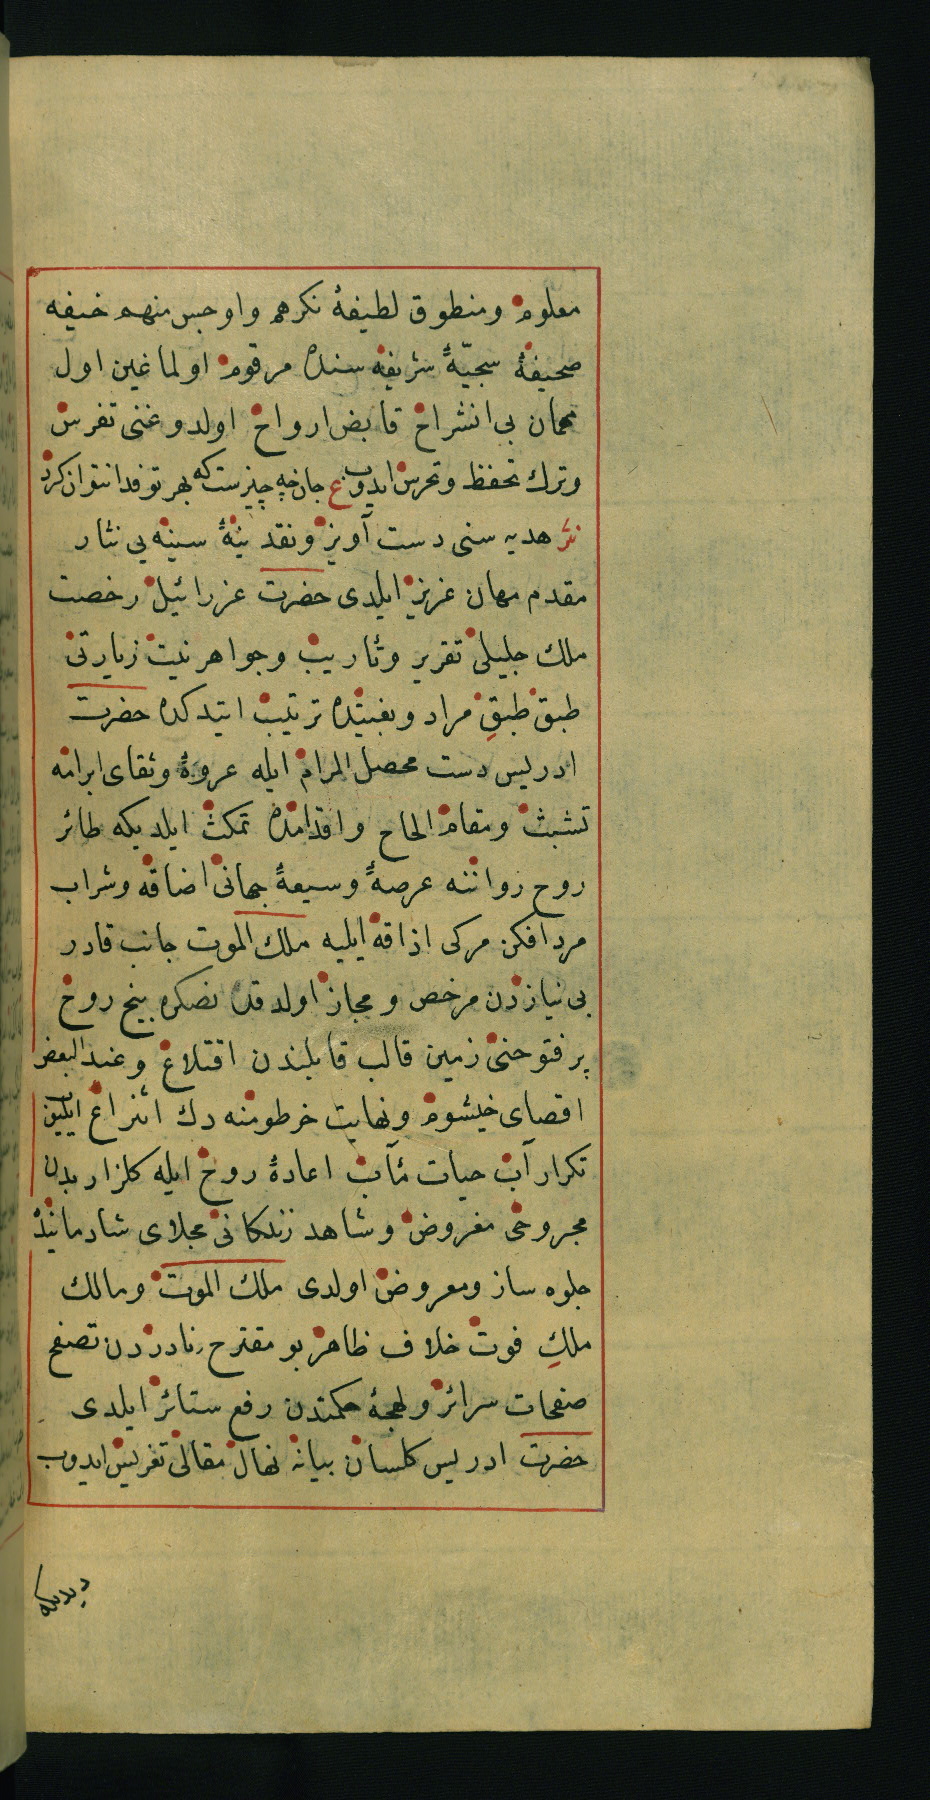 معلوم ومنطوق لطيفهٔ نكرهم واوجس منهم خيفه
صحيفهٔ سجيّهٔ شريفه سنده مرقوم اولماغين اول
مهمان بى انشراح قابض ارواح اولدوغنى تفرس
وترك تحفظ وتحرس ايدوب ع جان چه چيزست كه بهر تو فدا نتوان كرد
نثر هديه سنى دست آويز ونقدينهٔ سينه يى نثار
مقدم مهمان عزيز ايلدى حضرت عزرائيل رخصت
ملك جليلى تقرير وثاريب وجواهر نيت زيارتى
طبق طبق مراد وبغيتده ترتيب ايتدكده حضرت
ادريس دست محصل المرام ايله عروهٔ وثقاى ابرامه
تشبث ومقام الحاح واقدامده تمكث ايلديكه طائر
روح رواننه عرصهٔ وسيعهٔ جهانى اضاقه وشراب
مرد افكن مركى اذاقه ايليه ملك الموت جانب قادر
بى نيازدن مرخص ومجاز اولدقدنصكره بيخ روح
پر فتوحنى زمين قالب قابلندن اقتلاع وعند البعض
اقصاى خيشوم ونهايت خرطومنه دك انتزاع ايليوب
تكرار آب حيات مآب اعادهٔ روح ايله كلزار بدن
مجروحى مغروض وشاهد زندكانى مجلاى شادمانيده
جلوه ساز ومعروض اولدى ملك الموت ومالك
ملك فوت خلاف ظاهر بو مقترح نادردن تصفح
صفحات سرائر ولهجهٔ حكمتدن رفع ستائر ايلدى
حضرت ادريس كلسان بيانه نهال مقالى تغريس ايدوب
ديديكه